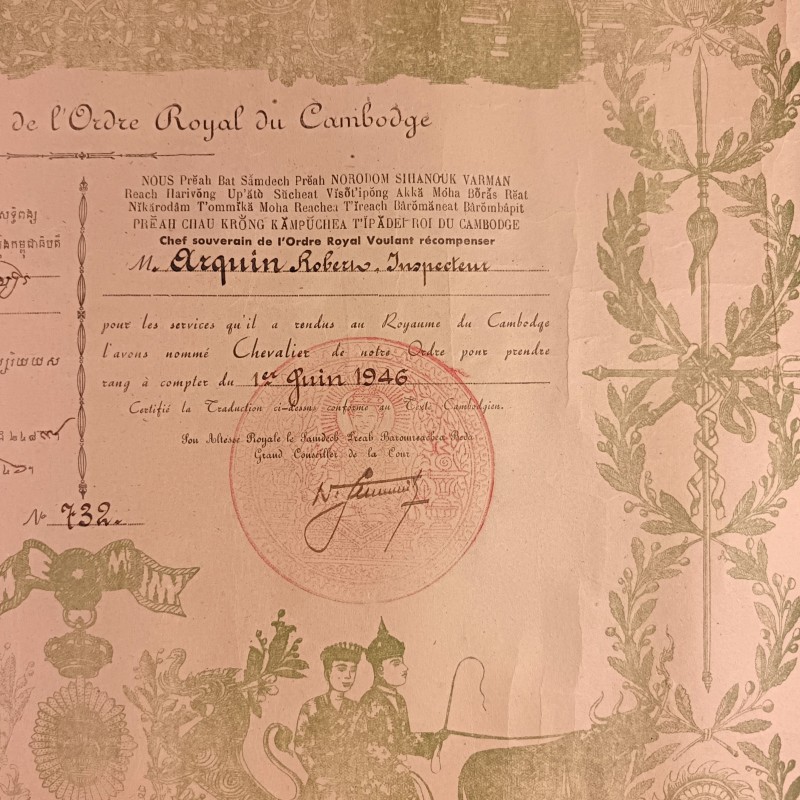 de l'Ordre Royal du Cambodge
NOUS Prĕah Bat Sâmdech Prĕah NORODOM SIHANOUK VARMAN
Reach Harivông Up'âtò Sŭcheat Vĭsŏt'ipông Akkă Mŏha Bŏrăs Rĕat
Nĭkărodâm T'ommĭkă Moha Reachea T'ireach Bărŏmăneat Bărŏmbăpit
PRĔAH CHAU KRŎNG KĂMPŬCHEA T'ĬPĂDEI ROI DU CAMBODGE
Chef souverain de l'Ordre Royal Voulant récompenser
M. Arquin Robert, Inspecteur
pour les services qu'il a rendus au Royaume du Cambodge
l'avons nommé Chevalier de notre Ordre pour prendre
rang à compter du 1er Juin 1946
Certifié la Traduction ci-dessus conforme au Texte Cambodgien.
Son Altesse Royale le Samdech Preah
Grand Conseiller de la Cour
២៤៨៩។
No 732.